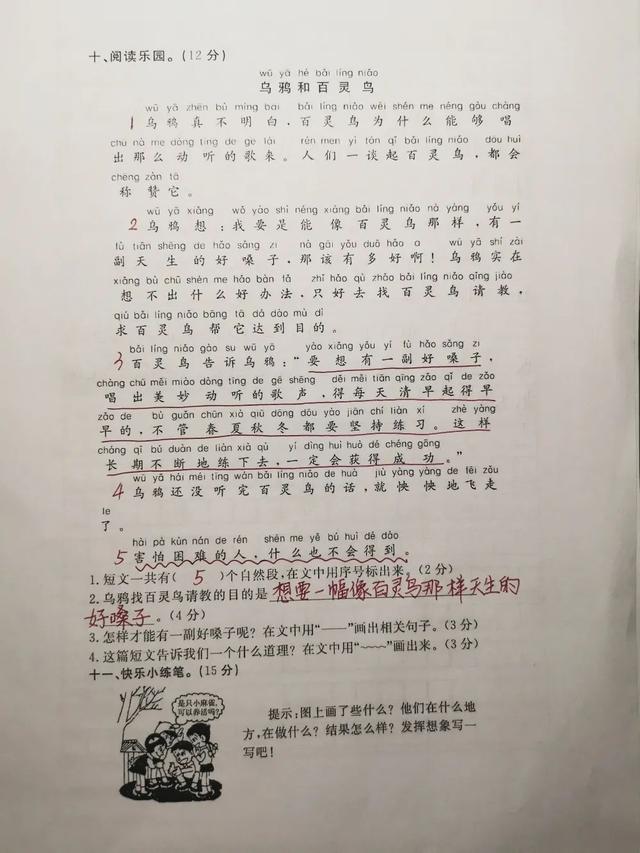 十、阅读乐园。(12分)
wū yā hé bǎi líng niǎo
乌鸦和百灵鸟
wū yā zhēn bù míng bai bǎi líng niǎo wèi shén me néng gòu chàng
1乌鸦真不明白,百灵鸟为什么能够唱
chū nà me dòng tīng de gē lái rén men yì tán qǐ bǎi líng niǎo dōu huì
出那么动听的歌来。人们一谈起百灵鸟,都会
chēng zàn tā
称赞它。
wū yā xiǎng wǒ yào shì néng xiàng bǎi líng niǎo nà yàng yǒu yí
2乌鸦想:我要是能像百灵鸟那样,有一
fù tiān shēng de hǎo sǎng zi nà gāi yǒu duō hǎo a wū yā shí zài
副天生的好嗓子,那该有多好啊!乌鸦实在
xiǎng bù chū shén me hǎo bàn fǎ zhǐ hǎo qù zhǎo bǎi líng niǎo qǐng jiào
想不出什么好办法,只好去找百灵鸟请教,
qiú bǎi líng niǎo bāng tā dá dào mù dì
求百灵鸟帮它达到目的。
bǎi líng niǎo gào su wū yā yào xiǎng yǒu yí fù hǎo sǎng zi
3百灵鸟告诉乌鸦:“要想有一副好嗓子,
chàng chū měi miào dòng tīng de gē shēng děi měi tiān qīng zǎo qǐ de zǎo
唱出美妙动听的歌声,得每天清早起得早
zǎo de bù guǎn chūn xià qiū dōng dōu yào jiān chí liàn xí zhè yàng
早的,不管春夏秋冬都要坚持练习。这样
cháng qī bú duàn de liàn xià qù yí dìng huì huò dé chéng gōng
长期不断地练下去,一定会获得成功。”
wū yā hái méi tīng wán bǎi líng niǎo de huà jiù yàng yàng de fēi zǒu
4乌鸦还没听完百灵鸟的话,就怏怏地飞走
le
了。
hài pà kùn nán de rén shén me yě bú huì dé dào
5害怕困难的人,什么也不会得到。
1. 短文一共有( 5 )个自然段,在文中用序号标出来。(2分)
2. 乌鸦找百灵鸟请教的目的是想要一幅像百灵鸟那样天生的
好嗓子。(4分)
3. 怎样才能有一副好嗓子呢?在文中用“——”画出相关句子。(3分)
4. 这篇短文告诉我们一个什么道理?在文中用“﹏﹏”画出来。(3分)
十一、快乐小练笔。(15分)
是只小麻雀,
可以养活吗?
提示:图上画了些什么?他们在什么地
方,在做什么?结果怎么样?发挥想象写一
写吧!